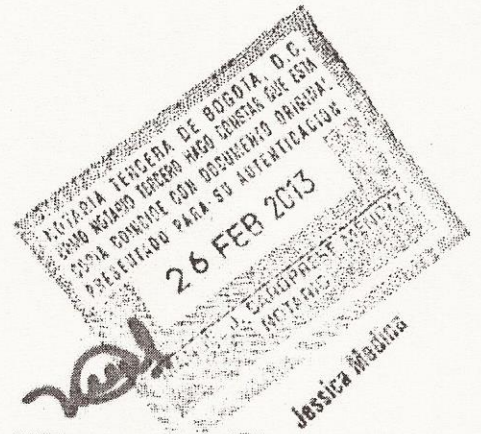 NOTARIA TERCERA DE BOGOTA, D.C.
COMO NOTARIO TERCERO HAGO CONSTAR QUE ESTA
COPIA COINCIDE CON DOCUMENTO ORIGINAL
PRESENTADO PARA SU AUTENTICACION.
26 FEB 2013
J.
NOTARIO
Jessica Medina